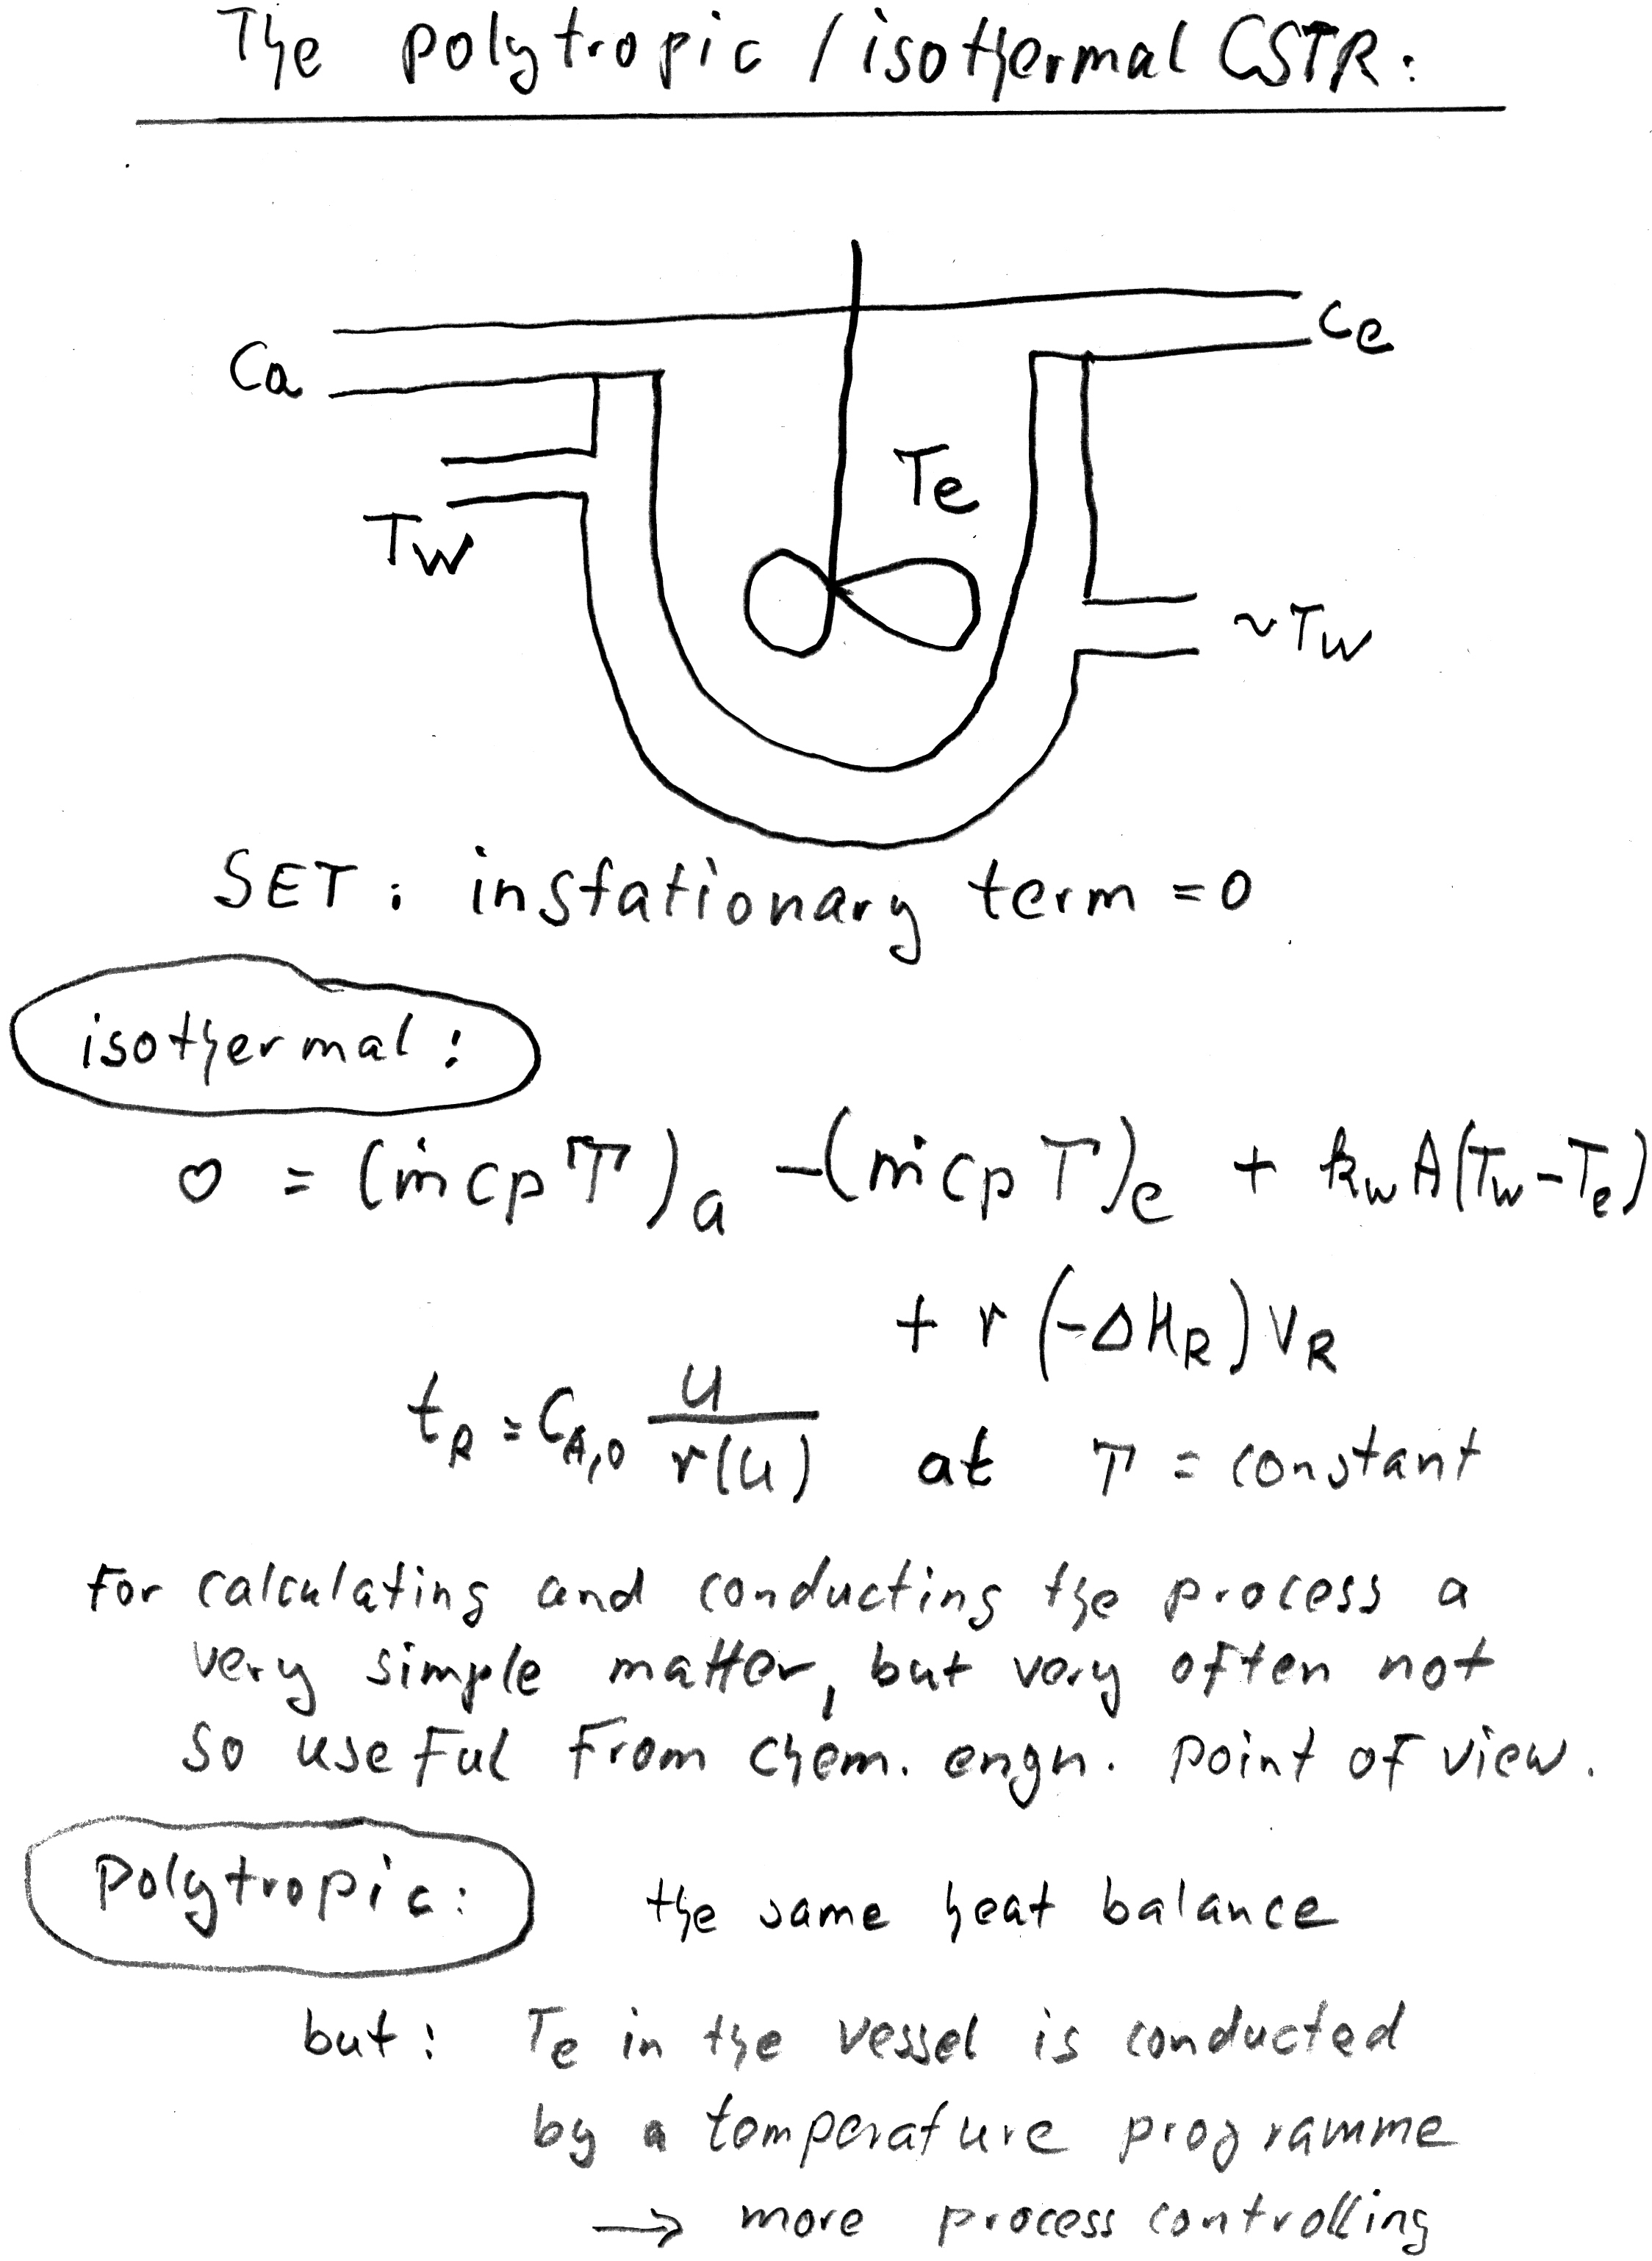 The polytropic / isothermal CSTR:
Ca
Ce
Te
Tw
~Tw
SET: instationary term = 0
isothermal:
0 = (ṁ cp T)a - (ṁ cp T)e + kw A(Tw - Te)
+ r (-ΔHR) VR
tR = CA,0 U / r(U) at T = constant
For calculating and conducting the process a
very simple matter, but very often not
so useful from chem. engn. point of view.
Polytropic: the same heat balance
but: Te in the vessel is conducted
by a temperature programme
→ more process controlling